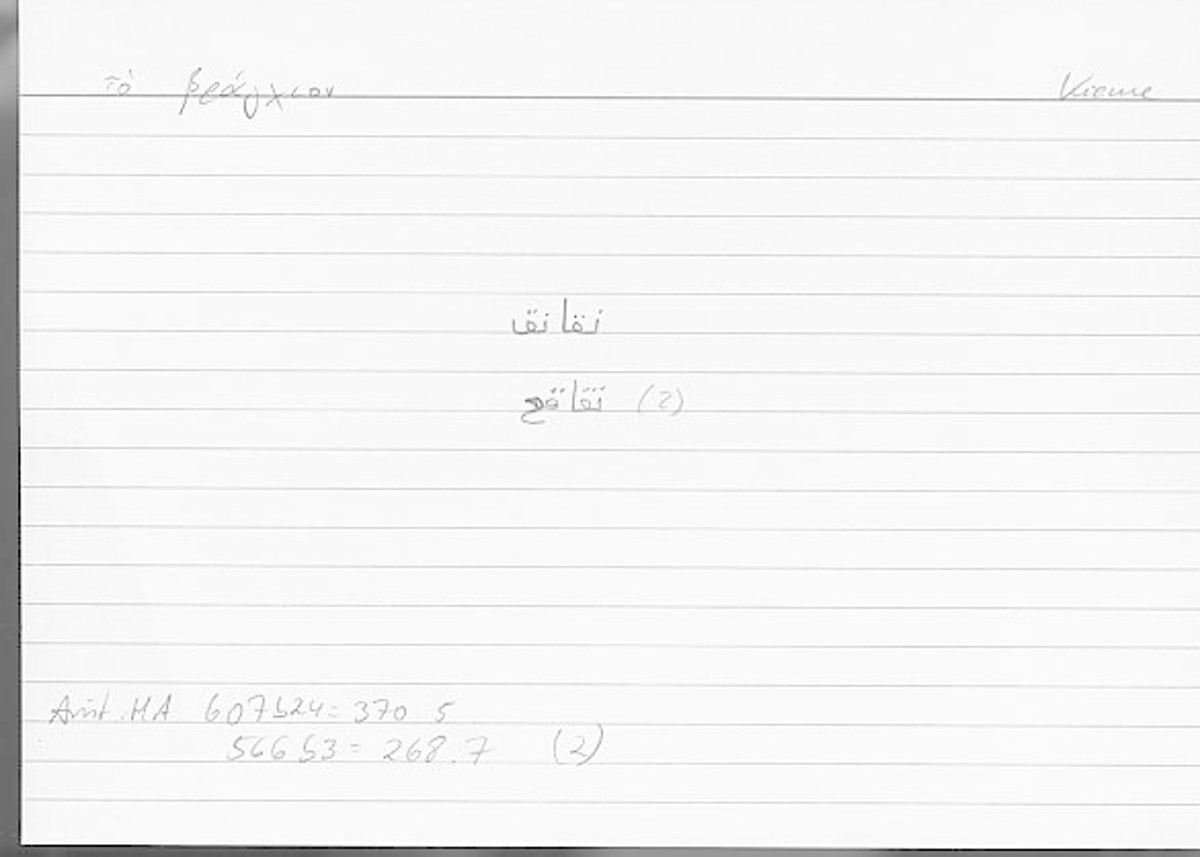 τὸ βράγχιον Kieme
نقانق
نقاقع (2)
Arist. HA 607b24 = 370 5
566b3 = 268.7 (2)